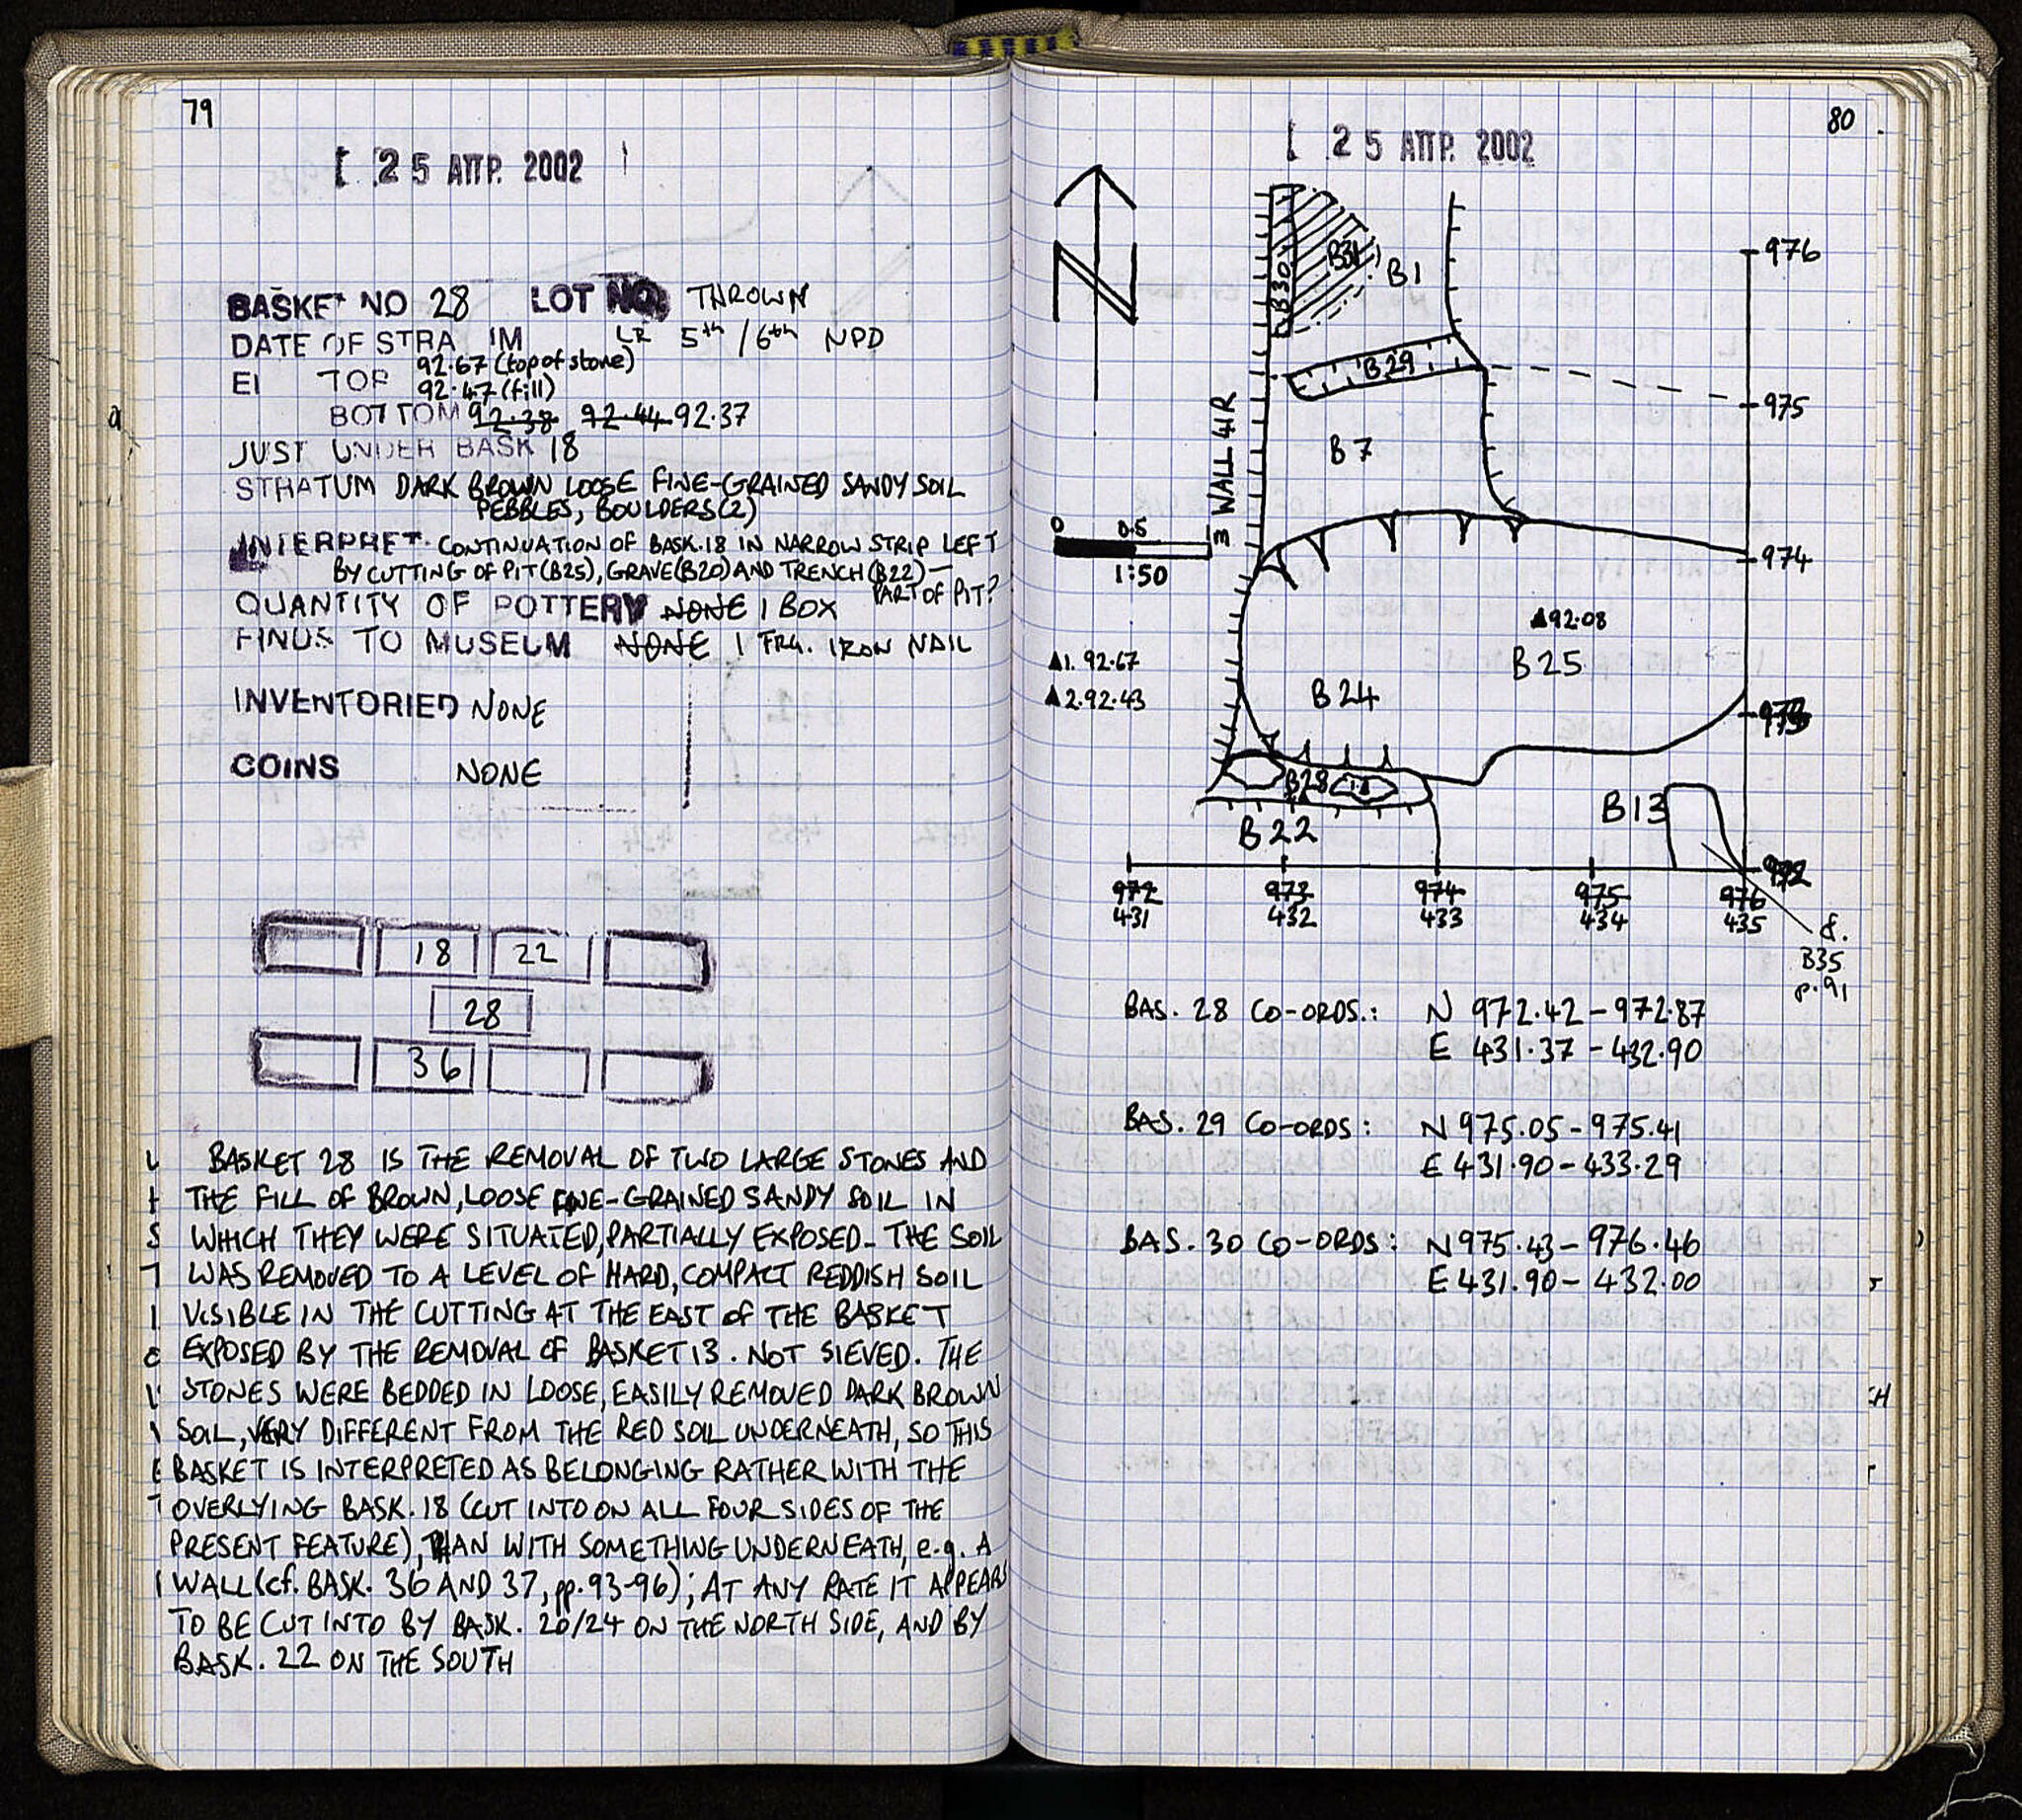 79
25 ΑΠΡ. 2002
BASKET NO 28 LOT NO THROWN
DATE OF STRA IM LR 5th / 6th NPD
El TOP 92.67 (top of stone)
92.47 (fill)
BOTTOM 92.38 92.44 92.37
JUST UNDER BASK 18
STRATUM DARK BROWN LOOSE FINE-GRAINED SANDY SOIL
PEBBLES, BOULDERS (2)
INTERPRET. CONTINUATION OF BASK. 18 IN NARROW STRIP LEFT
BY CUTTING OF PIT (B25), GRAVE (B20) AND TRENCH (B22) —
PART OF PIT?
QUANTITY OF POTTERY NONE 1 BOX
FINDS TO MUSEUM NONE 1 FRG. IRON NAIL
INVENTORIED NONE
COINS NONE
18 22
28
36
BASKET 28 IS THE REMOVAL OF TWO LARGE STONES AND
THE FILL OF BROWN, LOOSE FINE-GRAINED SANDY SOIL IN
WHICH THEY WERE SITUATED, PARTIALLY EXPOSED. THE SOIL
WAS REMOVED TO A LEVEL OF HARD, COMPACT REDDISH SOIL
VISIBLE IN THE CUTTING AT THE EAST OF THE BASKET
EXPOSED BY THE REMOVAL OF BASKET 13. NOT SIEVED. THE
STONES WERE BEDDED IN LOOSE, EASILY REMOVED DARK BROWN
SOIL, VERY DIFFERENT FROM THE RED SOIL UNDERNEATH, SO THIS
BASKET IS INTERPRETED AS BELONGING RATHER WITH THE
OVERLYING BASK. 18 (CUT INTO ON ALL FOUR SIDES OF THE
PRESENT FEATURE), THAN WITH SOMETHING UNDERNEATH, e.g. A
WALL (cf. BASK. 36 AND 37, pp. 93-96); AT ANY RATE IT APPEARS
TO BE CUT INTO BY BASK. 20/24 ON THE NORTH SIDE, AND BY
BASK. 22 ON THE SOUTH
80
25 ΑΠΡ. 2002
N
B30
B31
B1
976
B29
975
WALL 41R
B7
0 0.5 1 m
1:50
974
▲92.08
B25
▲1. 92.67
▲2. 92.43
B24
973
B28
B13
B22
972
972 973 974 975 976
431 432 433 434 435
&.
B35
p.91
BAS. 28 CO-ORDS.: N 972.42 - 972.87
E 431.37 - 432.90
BAS. 29 CO-ORDS: N 975.05 - 975.41
E 431.90 - 433.29
BAS. 30 CO-ORDS: N 975.43 - 976.46
E 431.90 - 432.00